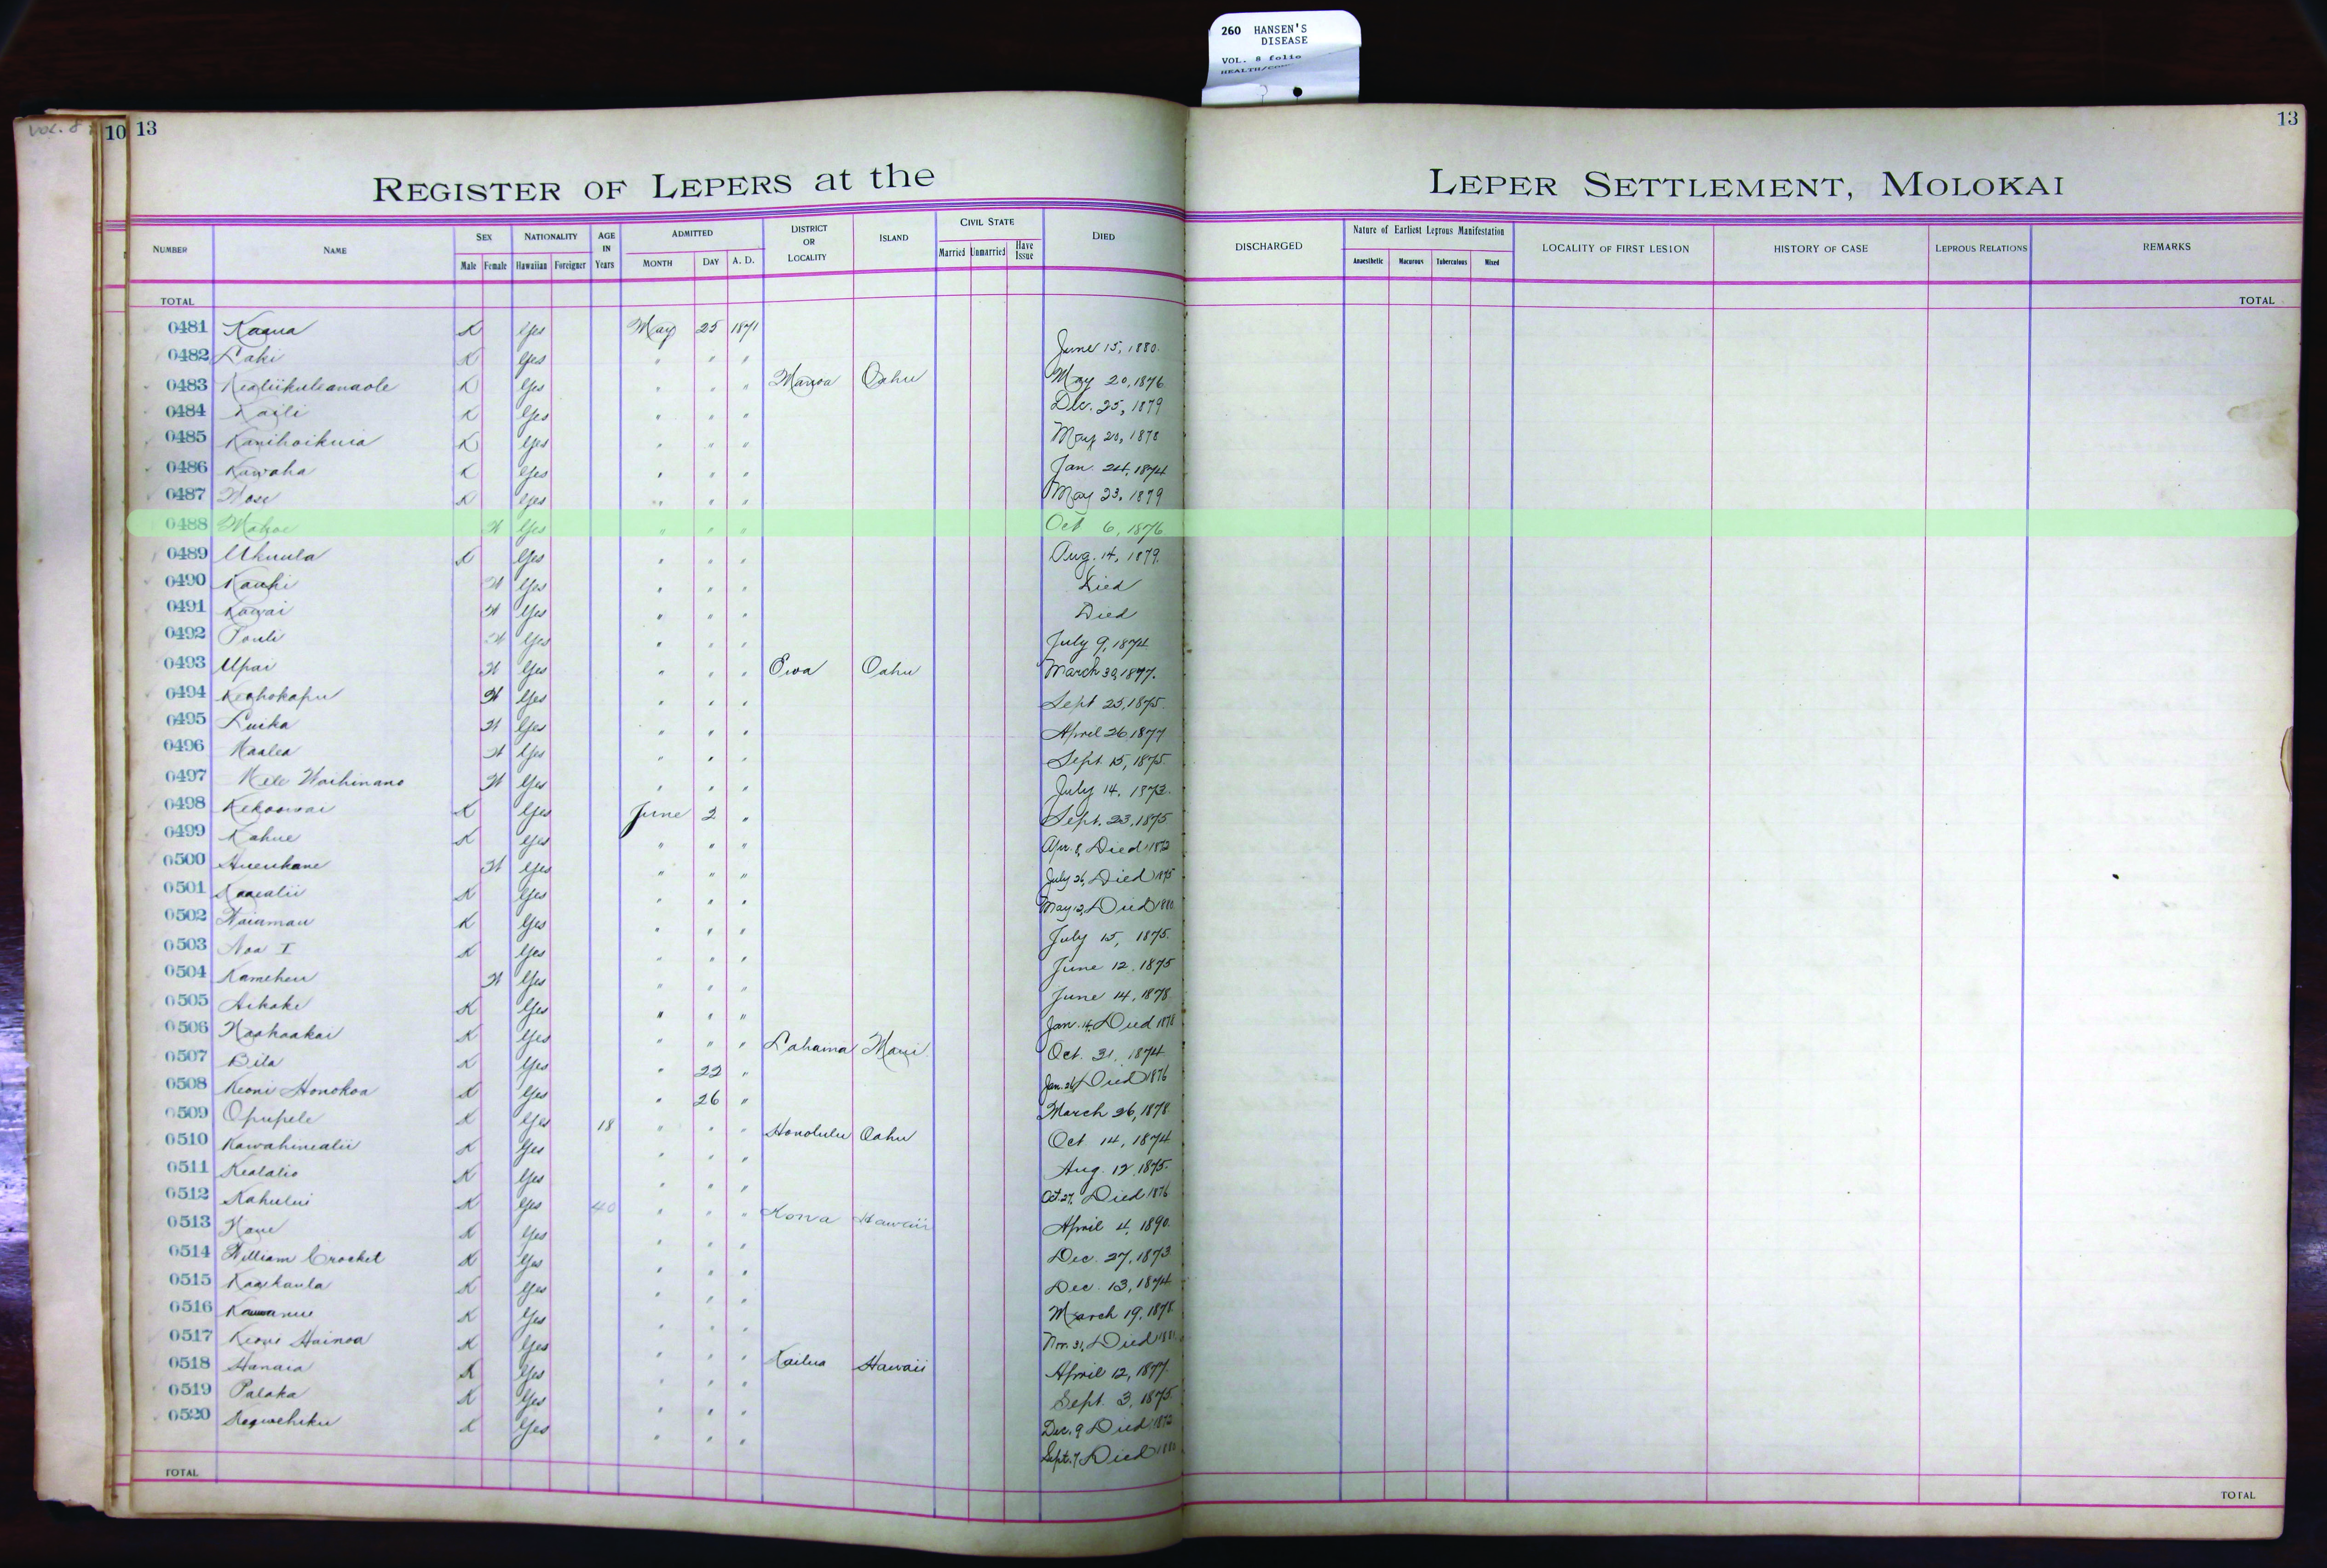 260 HANSEN'S
DISEASE
VOL. 8 folio
VOL. 8
10 13
13
REGISTER OF LEPERS at the LEPER SETTLEMENT, MOLOKAI
NUMBER NAME SEX Male Female NATIONALITY Hawaiian Foreigner AGE IN Years ADMITTED MONTH DAY A. D. DISTRICT OR LOCALITY ISLAND CIVIL STATE Married Unmarried Have Issue DIED DISCHARGED Nature of Earliest Leprous Manifestation Anaesthetic Macurous Tuberculous Mixed LOCALITY OF FIRST LESION HISTORY OF CASE LEPROUS RELATIONS REMARKS
TOTAL TOTAL
0481 Kaaua K Yes May 25 1871
0482 Laki K Yes " " " June 15, 1880.
0483 Kealiikuleanaole K Yes " " " Manoa Oahu May 20, 1876
0484 Kaili K Yes " " " Dec. 25, 1879
0485 Kanihoikuia K Yes " " " May 20, 1878
0486 Kuwaha K Yes " " " Jan. 24, 1874
0487 K Yes " " " May 23, 1879
0488 Mahoe W Yes " " " Oct 6, 1876.
0489 Ukuula K Yes " " " Aug. 14, 1879.
0490 Kauhi W Yes " " " Died
0491 Kawai W Yes " " " Died
0492 Pouli W Yes " " " July 9, 1874
0493 Upai W Yes " " " Ewa Oahu March 30, 1877.
0494 Keahokapu W Yes " " " Sept 25, 1875.
0495 Luika W Yes " " " April 26 1877
0496 Kaalea W Yes " " " Sept. 15, 1875.
0497 Mele Waihinano W Yes " " " July 14, 1873.
0498 Kekoowai K Yes June 2 " Sept. 23, 1875
0499 Kahue K Yes " " " Apr. 8, Died 1872
0500 Hueukane W Yes " " " July 26, Died 1875
0501 Kaaealii K Yes " " " May 12, Died 1880
0502 Waiamau K Yes " " " July 15, 1875.
0503 Noa I K Yes " " " June 12, 1875
0504 Kameheu W Yes " " " June 14, 1878
0505 Aikake K Yes " " " Jan. 14, Died 1878
0506 Naahaakai K Yes " " " Lahaina Maui. Oct. 31, 1874
0507 Bila K Yes " 22 " Jan. 26, Died 1876
0508 Keoni Honokoa K Yes " 26 " March 26, 1878.
0509 Opupele K Yes 18 " " " Honolulu Oahu Oct 14, 1874
0510 Kawahinealii K Yes " " " Aug. 12, 1875.
0511 Kealalio K Yes " " " Oct. 27, Died 1876
0512 Kahului K Yes 40 " " " Kona Hawaii April 4, 1890.
0513 Kane K Yes " " " Dec. 27, 1873.
0514 William Crocket K Yes " " " Dec. 13, 1874
0515 Kaaikaula K Yes " " " March 19, 1878.
0516 K Yes " " " Nov. 31, Died
0517 Keoni Hainoa K Yes " " " Kailua Hawaii April 12, 1877.
0518 Hanaia K Yes " " " Sept. 3, 1875.
0519 Palaka K Yes " " " Dec. 9 Died 1872
0520 K Yes " " " Sept. 7, Died
TOTAL TOTAL